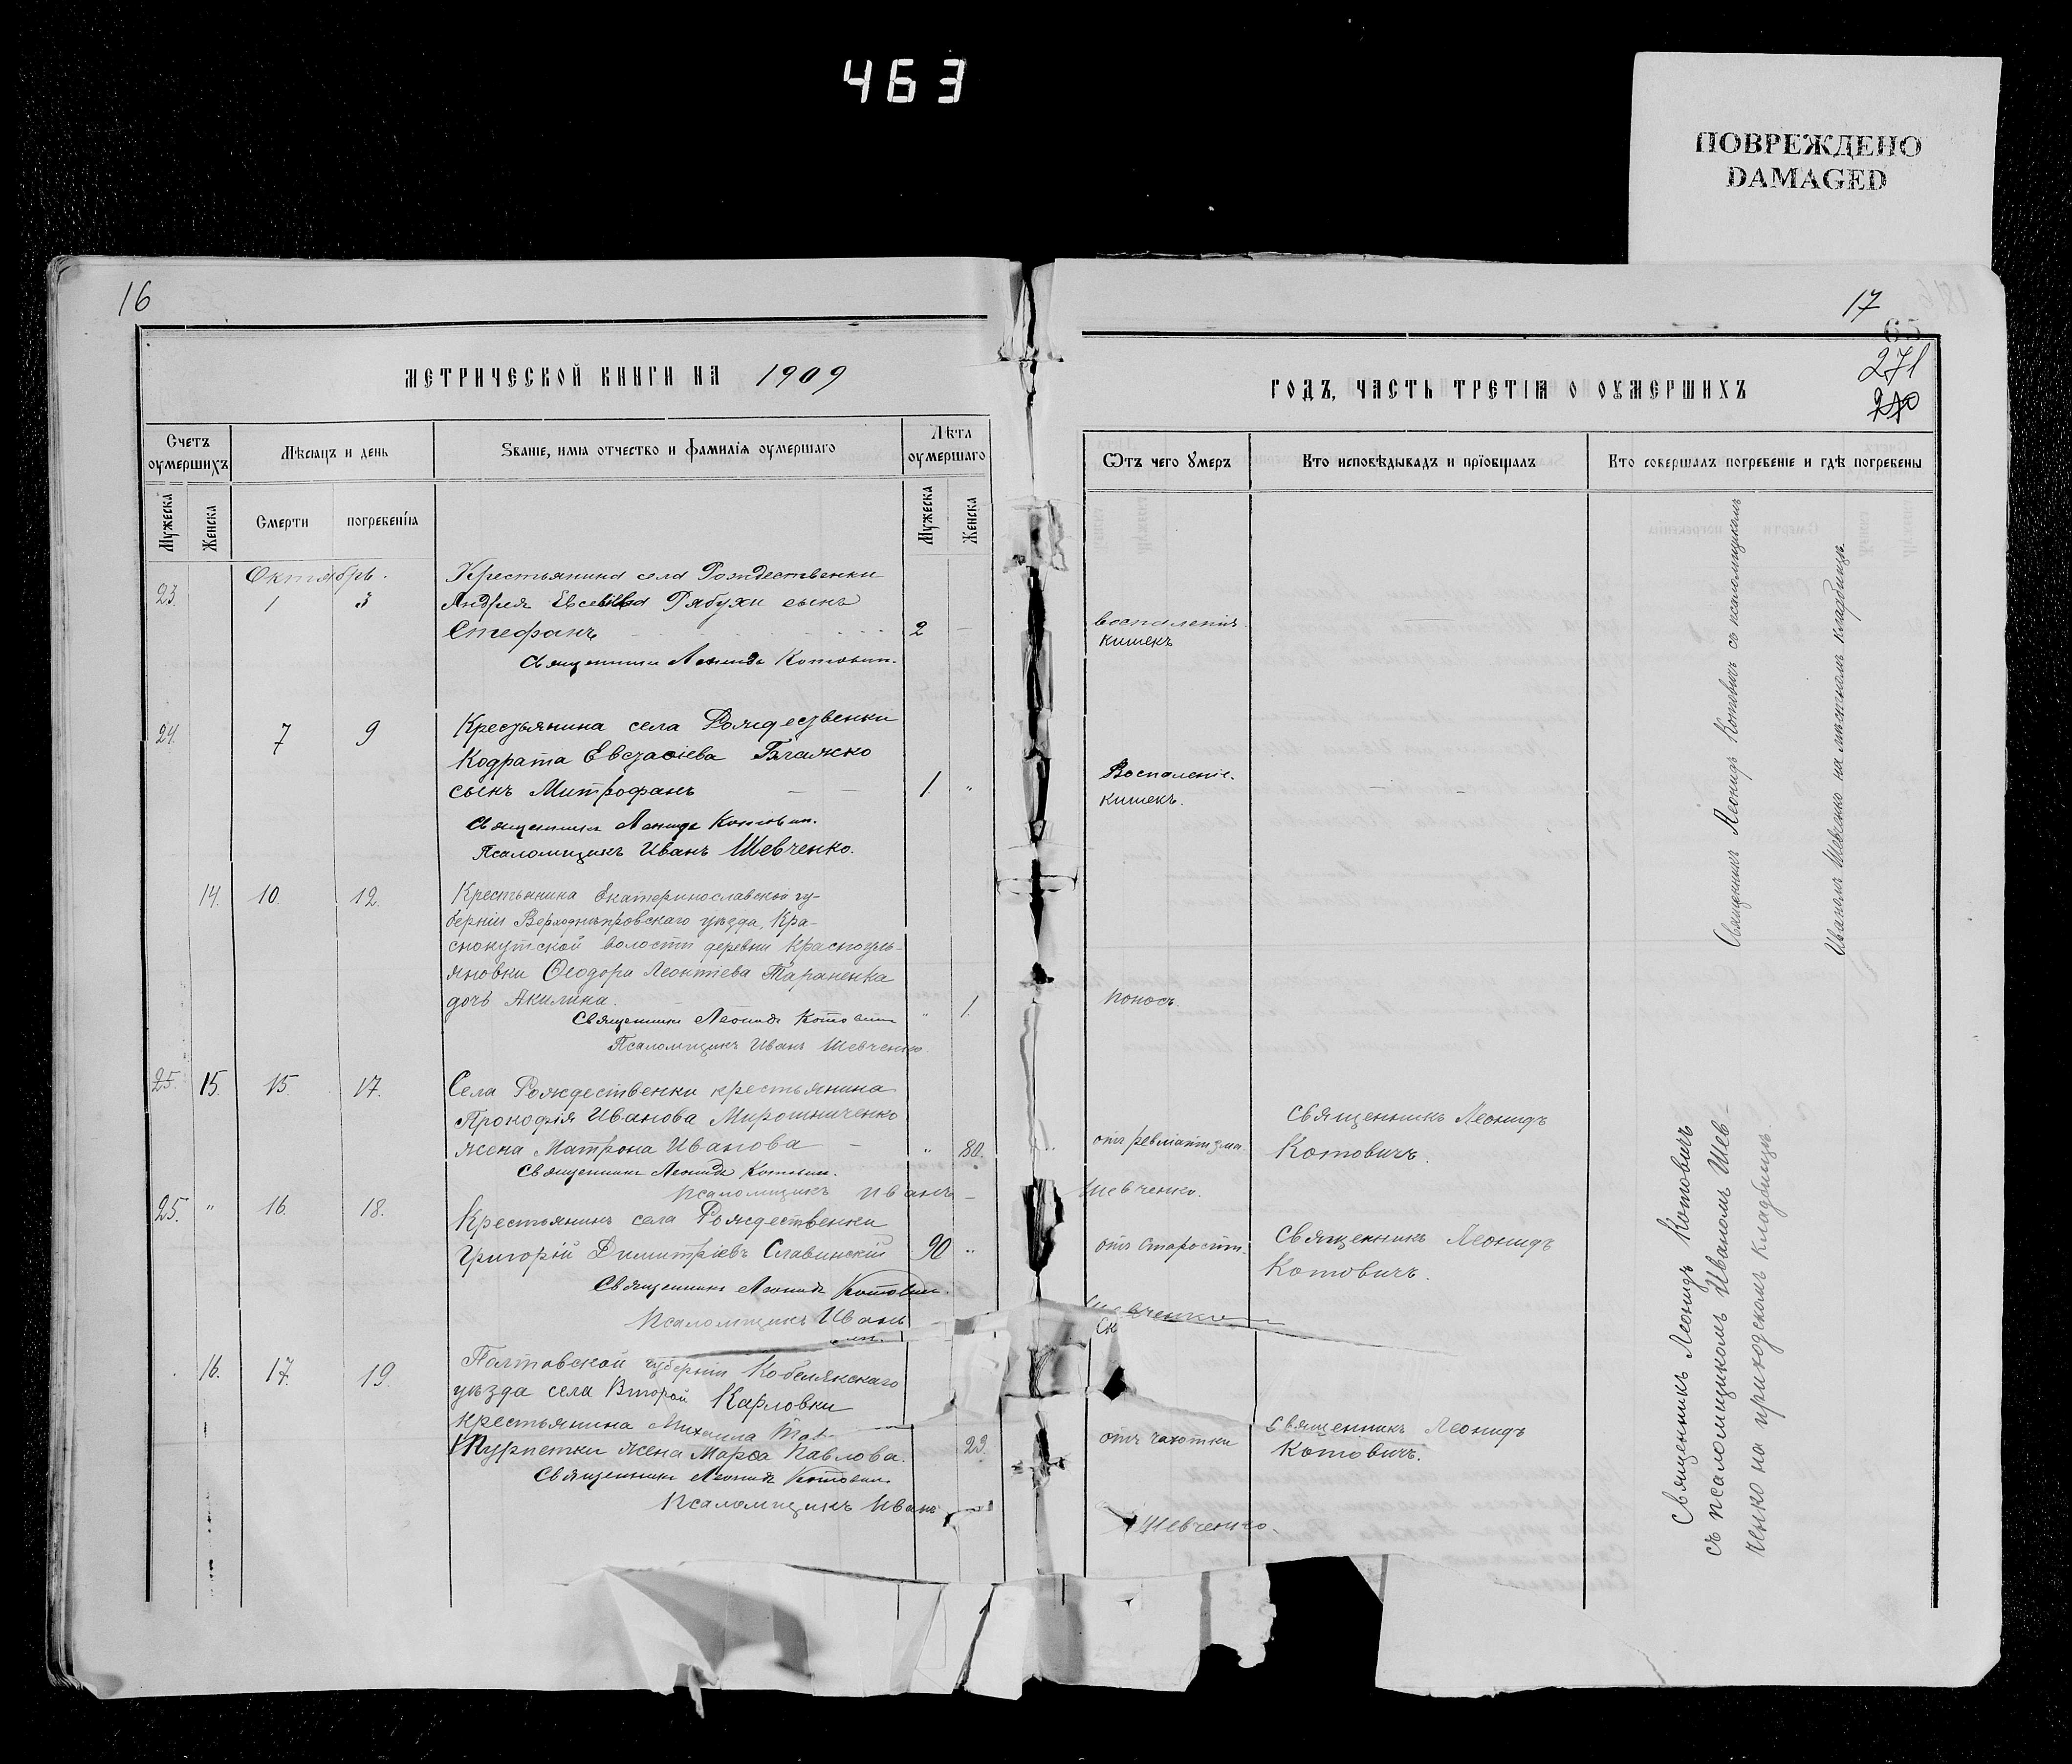 463
ПОВРЕЖДЕНО
DAMAGED
16
МЕТРИЧЕСКОЙ КНИГИ НА 1909
Счетъ оумершихъ
Мѣсяцъ и день
Званіе, имя отчество и фамилія оумершаго
Лѣта оумершаго
Мужеска
Женска
Смерти
погребенія
Мужеска
Женска
Октябрь.
23. 1 3 Крестьянина села Рождественки
Андрея Рябухи сынъ
Стефанъ 2 —
Священникъ Леонидъ Котовичъ.
24. 7 9 Крестьянина села Рождественки
Кодрата Евстафіева Блажко
сынъ Митрофанъ — — 1. "
Священникъ Леонидъ Котовичъ.
Псаломщикъ Иванъ Шевченко.
14. 10. 12. Крестьянина Екатеринославской гу-
берніи Верходнѣпровскаго уѣзда, Кра-
снокутской волости деревни Красноуль-
яновки Ѳеодора Леонтіева Тараненка
дочь Акилина. " 1.
Священникъ Леонидъ Котовичъ
Псаломщикъ Иванъ Шевченко.
25. 15. 15. 17. Села Рождественки крестьянина
Прокофія Иванова Мирошниченко
жена Матрона Иванова — " 80.
Священникъ Леонидъ Котовичъ.
Псаломщикъ Иванъ —
25. " 16. 18. Крестьянинъ села Рождественки
Григорій Димитріевъ Славинскій 90 "
Священникъ Леонидъ Котовичъ.
Псаломщикъ Иванъ
16. 17. 19. Полтавской губерніи Кобелякскаго
уѣзда села Второй Карловки
крестьянина Михаила
Шурпетки жена Марѳа Павлова. 23.
Священникъ Леонидъ Котовичъ.
Псаломщикъ Иванъ
17
65
271
270
ГОДЪ, ЧАСТЬ ТРЕТІЯ О ОУМЕРШИХЪ
Отъ чего умеръ
Кто исповѣдывалъ и пріобщалъ
Кто совершалъ погребеніе и гдѣ погребены
воспаленія —
кишекъ
Воспаленіе — -
кишекъ.
поносъ.
отъ ревматизма. Священникъ Леонидъ
Котовичъ.
Шевченко.
отъ старости. Священникъ Леонидъ
Котовичъ.
Шевченко
отъ чахотки Священникъ Леонидъ
Котовичъ.
Шевченко.
Священникъ Леонидъ Котовичъ съ псаломщикомъ
Иваномъ Шевченко на мѣстномъ кладбищѣ.
Священникъ Леонидъ Котовичъ
съ псаломщикомъ Иваномъ Шев-
ченко на приходскомъ кладбищѣ.